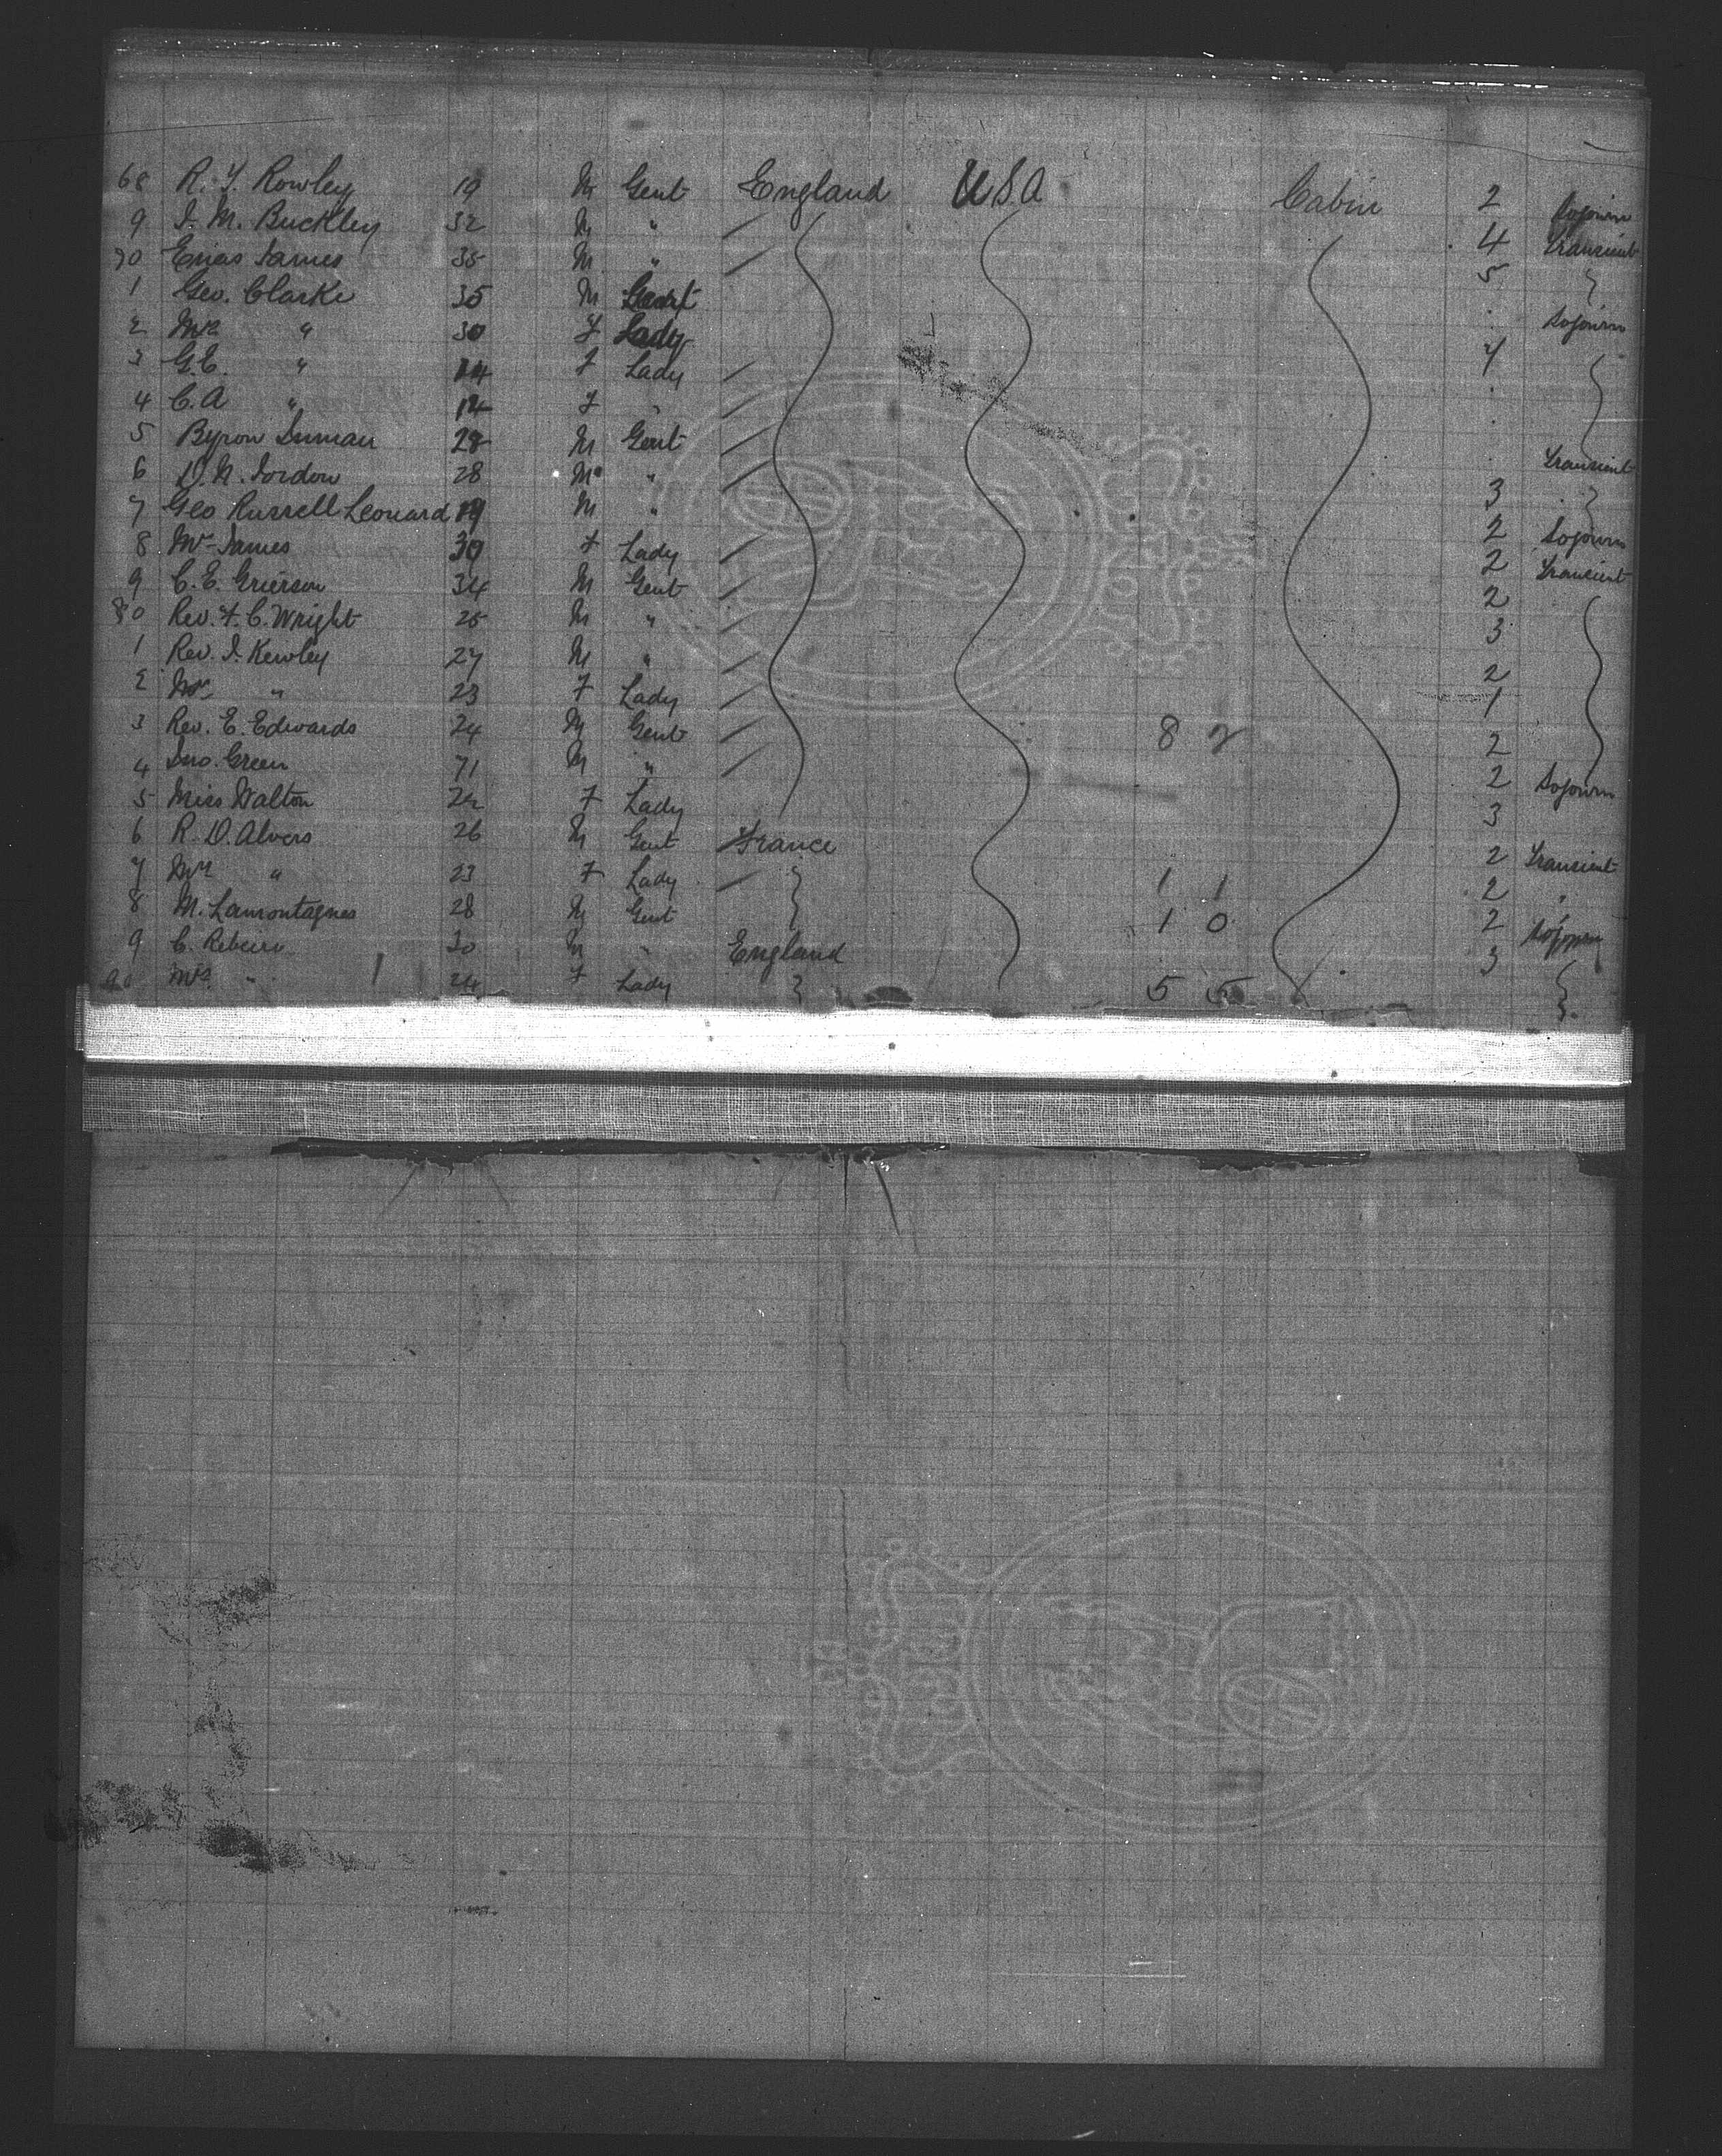 68 R. Y. Rowley 19 M Gent England USA Cabin 2 Sojourn
9 J. M. Buckley 32 M " 4 Transient
70 Enias James 35 M " 5
1 Geo. Clarke 35 M Gent Sojourn
2 Mrs " 30 F Lady 7
3 G.E. " 14 F Lady
4 C.A " 12 F
5 Byron Inman 28 M Gent Transient
6 D.N. Jordon 28 M " 3
7 Geo Russell Leonard 19 M " 2 Sojourn
8 Mrs James 30 F Lady 2 Transient
9 C. E. Grierson 34 M Gent 2
80 Rev. F. C. Wright 25 M " 3
1 Rev. J. Kewley 27 M " 2
2 Mrs " 23 F Lady 1
3 Rev. E. Edwards 24 M Gent 8 2 2
4 Jno. Green 71 M " 2 Sojourn
5 Miss Walton 24 F Lady 3
6 R. D. Alvers 26 M Gent France 2 Transient
7 Mrs " 23 F Lady 1 1 2 "
8 M. Lamontagnes 28 M Gent 1 0 2 Sojourn
9 C. Rebeiro 30 M " England 3
90 Mrs. " 24 F Lady 5 5